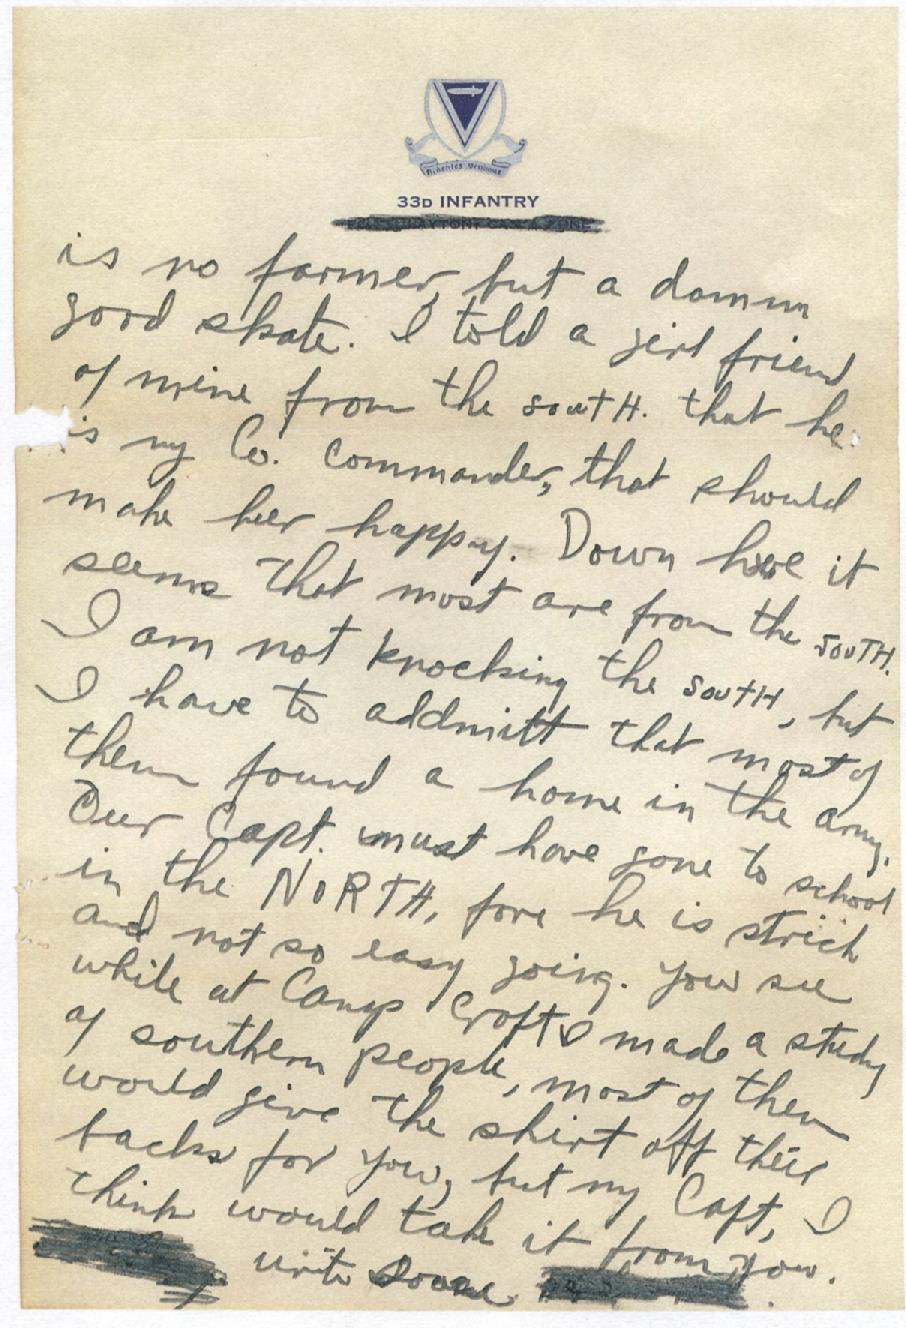 33D INFANTRY
is no farmer, but a damm
good skate. I told a girl friend
of mine from the SOUTH. that he
is my Co. Commander, that should
make her happy. Down here it
seems that most are from the SOUTH.
I am not knocking the SOUTH, but
I have to addmitt that most of
them found a home in the army.
Our Capt. must have gone to school
in the NORTH, fore he is strict
and not so easy going. You see
while at Camp Croft I made a study
of southern people, most of them
would give the shirt off their
backs for you, but my Capt, I
think would take it from you.
write soone